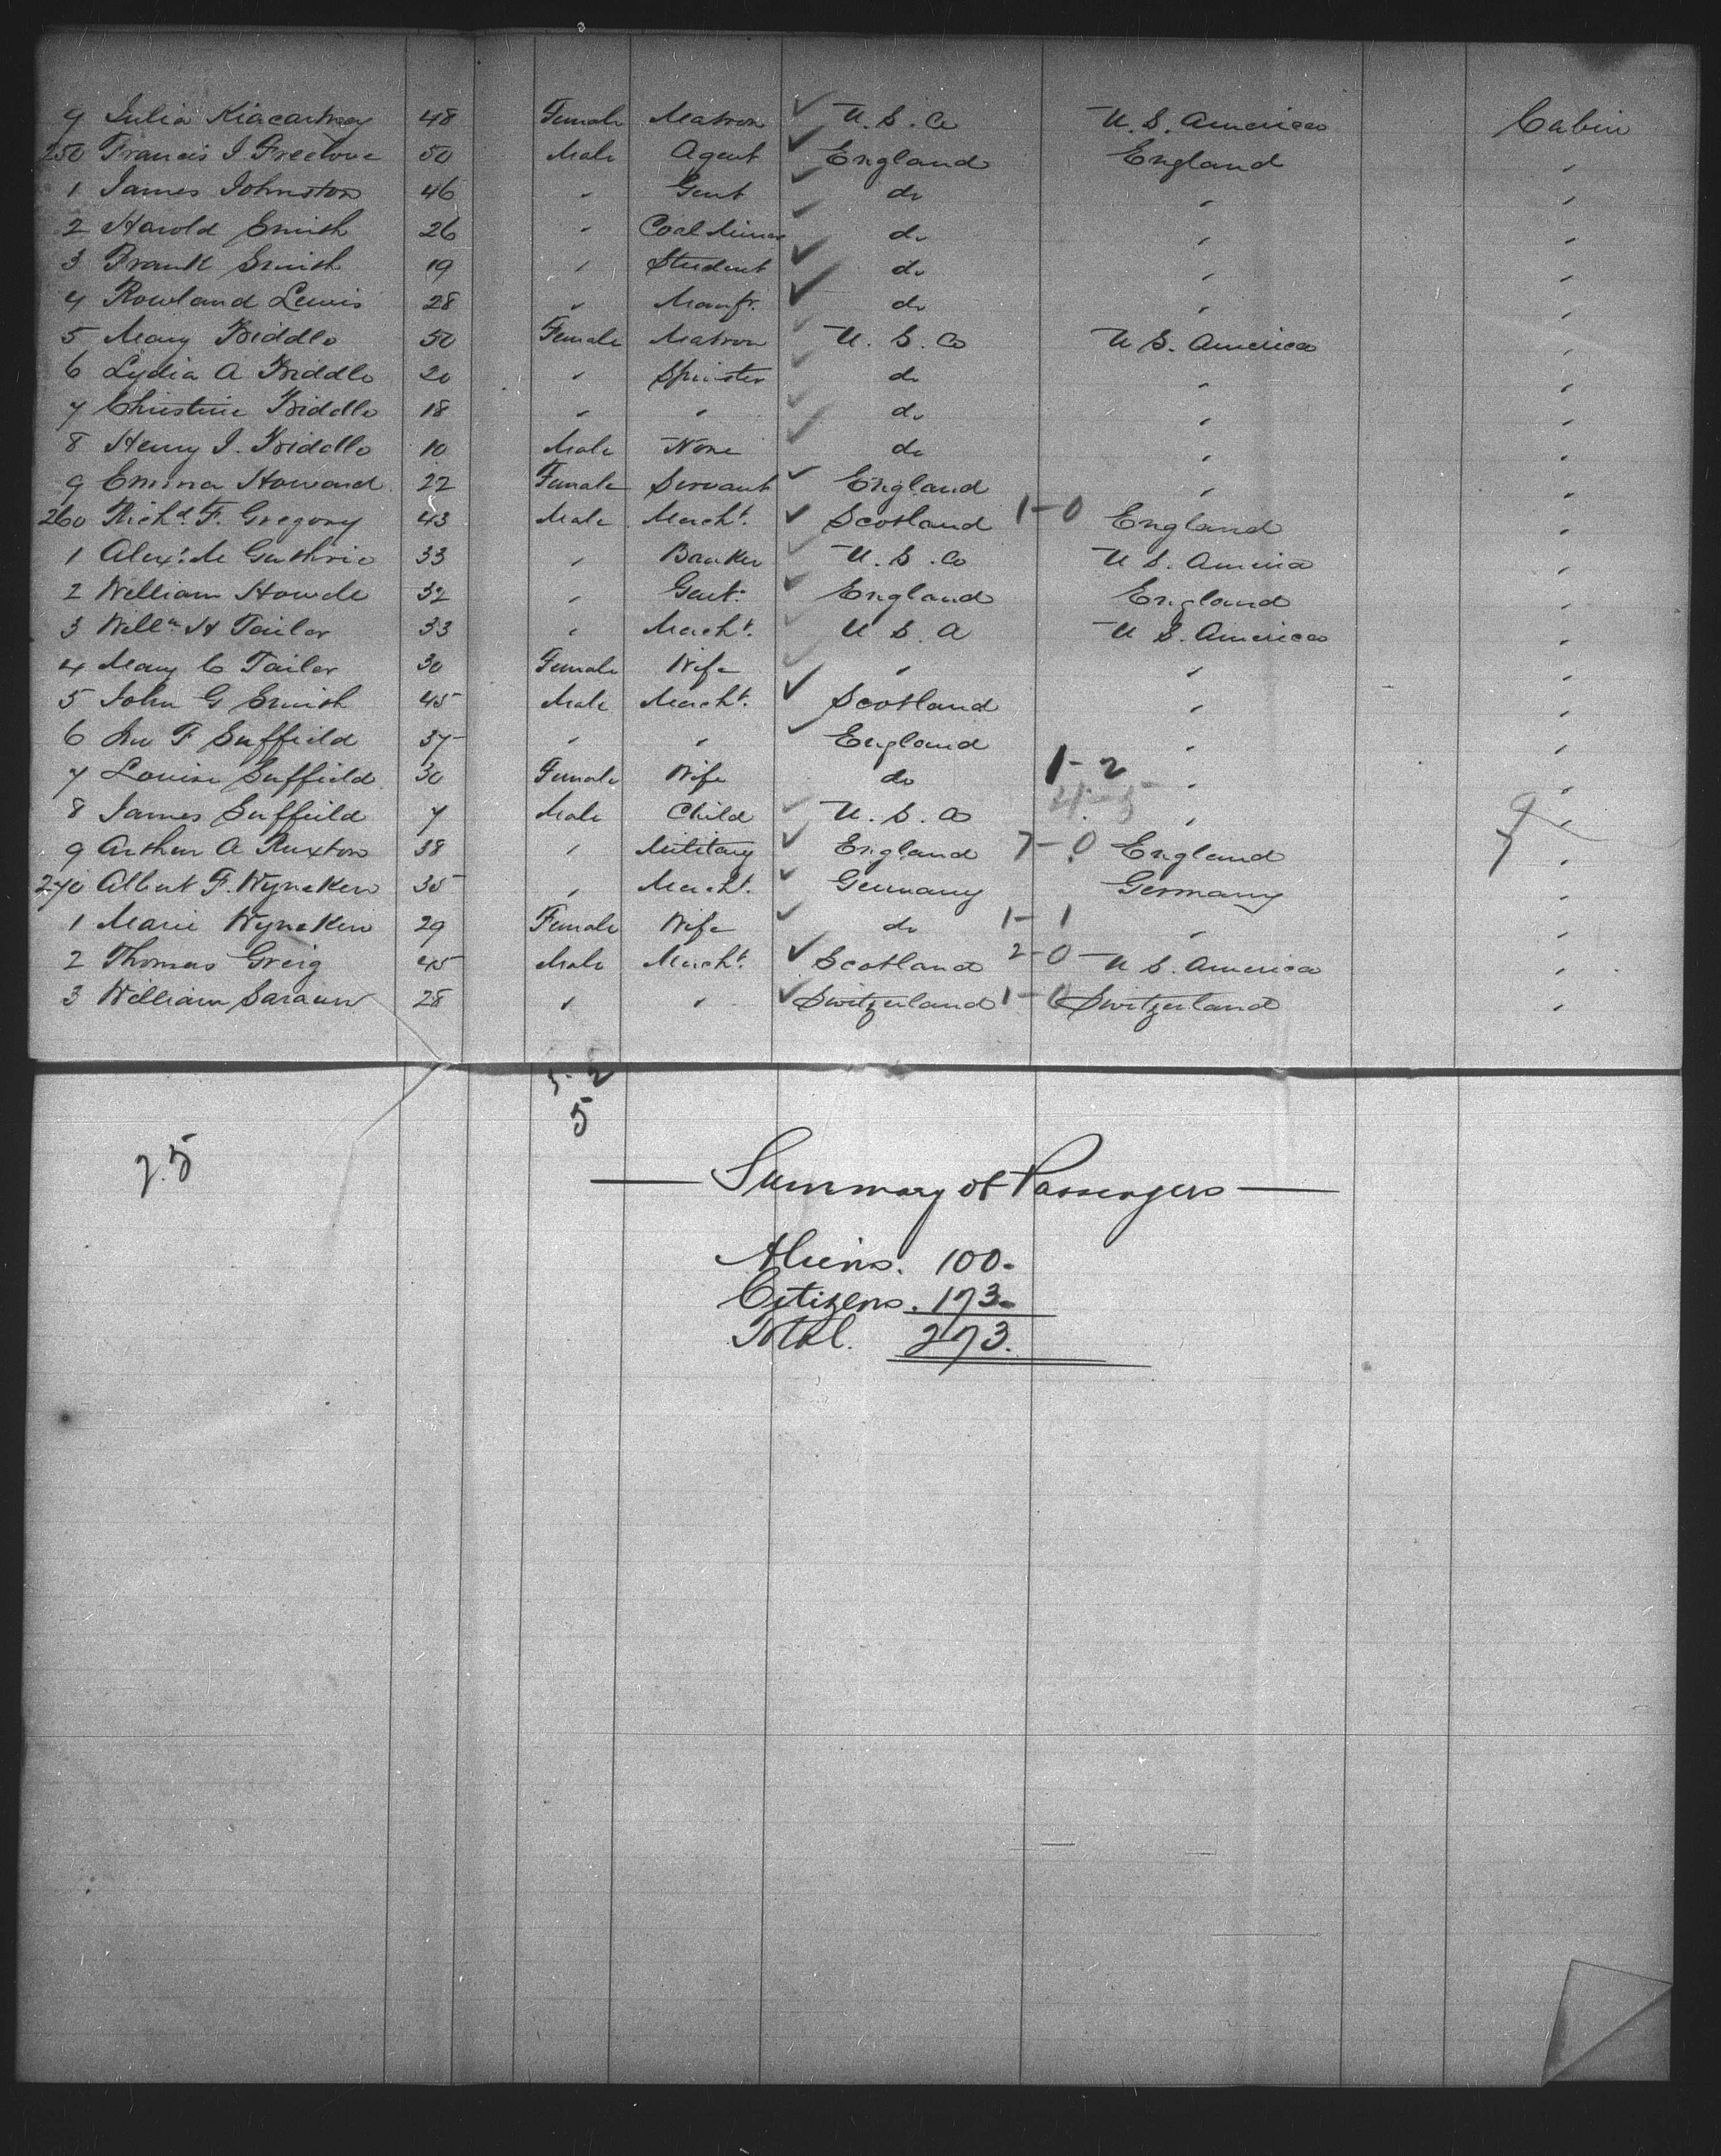 9 Julia 48 Female Matron U.S.A U.S. America Cabin
250 Francis J. Freelove 50 Male Agent England England "
1 James Johnston 46 " Gent do " "
2 Harold Smith 26 " Coal Miner do " "
3 Frank Smith 19 " Student do " "
4 Rowland Lewis 28 " Manfr. do " "
5 Mary Biddle 50 Female Matron U.S.A U.S. America "
6 Lydia A Biddle 20 " Spinster do " "
7 Christine Biddle 18 " " do " "
8 Henry J. Biddle 10 Male None do " "
9 Emma Howard 22 Female Servant England " "
260 Richd. F. Gregory 43 Male Macht. Scotland 1-0 England "
1 Alexr. M Guthrie 33 " Banker U.S.A U.S. America "
2 William 32 " Gent. England England "
3 Willm H Tailer 33 " Mercht. U S A U S. America "
4 Mary C Tailer 30 Female Wife " " "
5 John G Smith 45 Male Mercht. Scotland " "
6 Jno F Suffield 37 " " England " "
7 Louise Suffield 30 Female Wife do 1-2 " "
8 James Suffield 7 Male Child U.S.A " "
9 Arthur A Ruxton 38 " Military England 7-0 England "
270 Albert F. Wyneken 35 " Mercht. Germany Germany "
1 Marie Wyneken 29 Female Wife do 1-1 " "
2 Thomas Greig 45 Male Mercht. Scotland 2-0 U S. America "
3 William Sarauw 28 " " Switzerland 1-0 Switzerland "
5-2
5
25
Summary of Passengers
Aliens. 100.
Citizens. 173.
Total. 273.